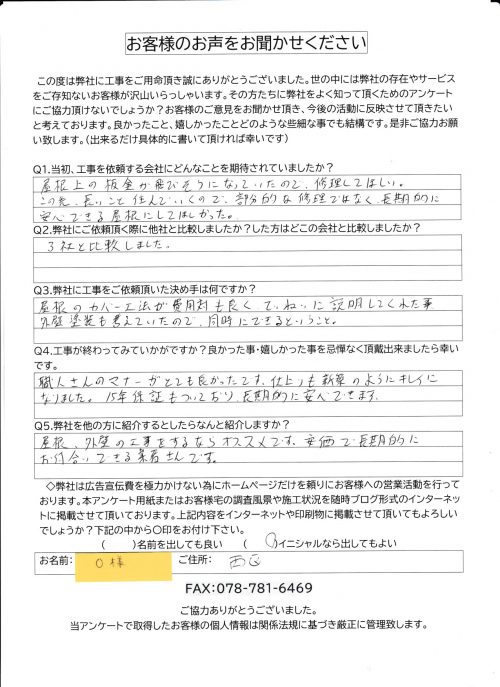 お客様のお声をお聞かせください
この度は弊社に工事をご用命頂き誠にありがとうございました。世の中には弊社の存在やサービス
をご存知ないお客様が沢山いらっしゃいます。その方たちに弊社をよく知って頂くためのアンケート
にご協力頂けないでしょうか？お客様のご意見をお聞かせ頂き、今後の活動に反映させて頂きたい
と考えております。良かったこと、嬉しかったことどのような些細な事でも結構です。是非ご協力お願
い致します。（出来るだけ具体的に書いて頂ければ幸いです）
Q1.当初、工事を依頼する会社にどんなことを期待されていましたか？
屋根上の板金が飛びそうになっていたので、修理してほしい。
この先、長いこと住んでいくので、部分的な修理ではなく、長期的に
安心できる屋根にしてほしかった。
Q2.弊社にご依頼頂く際に他社と比較しましたか？した方はどこの会社と比較しましたか？
3社と比較しました。
Q3.弊社に工事をご依頼頂いた決め手は何ですか？
屋根のカバー工法が費用対も良く、ていねいに説明してくれた事
外壁塗装も考えていたので、同時にできるということ。
Q4.工事が終わってみていかがですか？良かった事・嬉しかった事を忌憚なく頂戴出来ましたら幸い
です。
職人さんのマナーがとても良かったです、仕上りも新築のようにキレイに
なりました。15年保証もついており、長期的に安心できます。
Q5.弊社を他の方に紹介するとしたらなんと紹介しますか？
屋根、外壁の工事をするならオススメです、安価で長期的に
お付合いできる業者さんです。
◇弊社は広告宣伝費を極力かけない為にホームページだけを頼りにお客様への営業活動を行って
おります。本アンケート用紙またはお客様宅の調査風景や施工状況を随時ブログ形式のインターネッ
トに掲載させて頂いております。上記内容をインターネットや印刷物に掲載させて頂いてもよろしい
でしょうか？下記の中から〇印をお付け下さい。
（　）名前を出しても良い　（○）イニシャルなら出してもよい
お名前： O様 ご住所： 西区
FAX:078-781-6469
ご協力ありがとうございました。
当アンケートで取得したお客様の個人情報は関係法規に基づき厳正に管理致します。